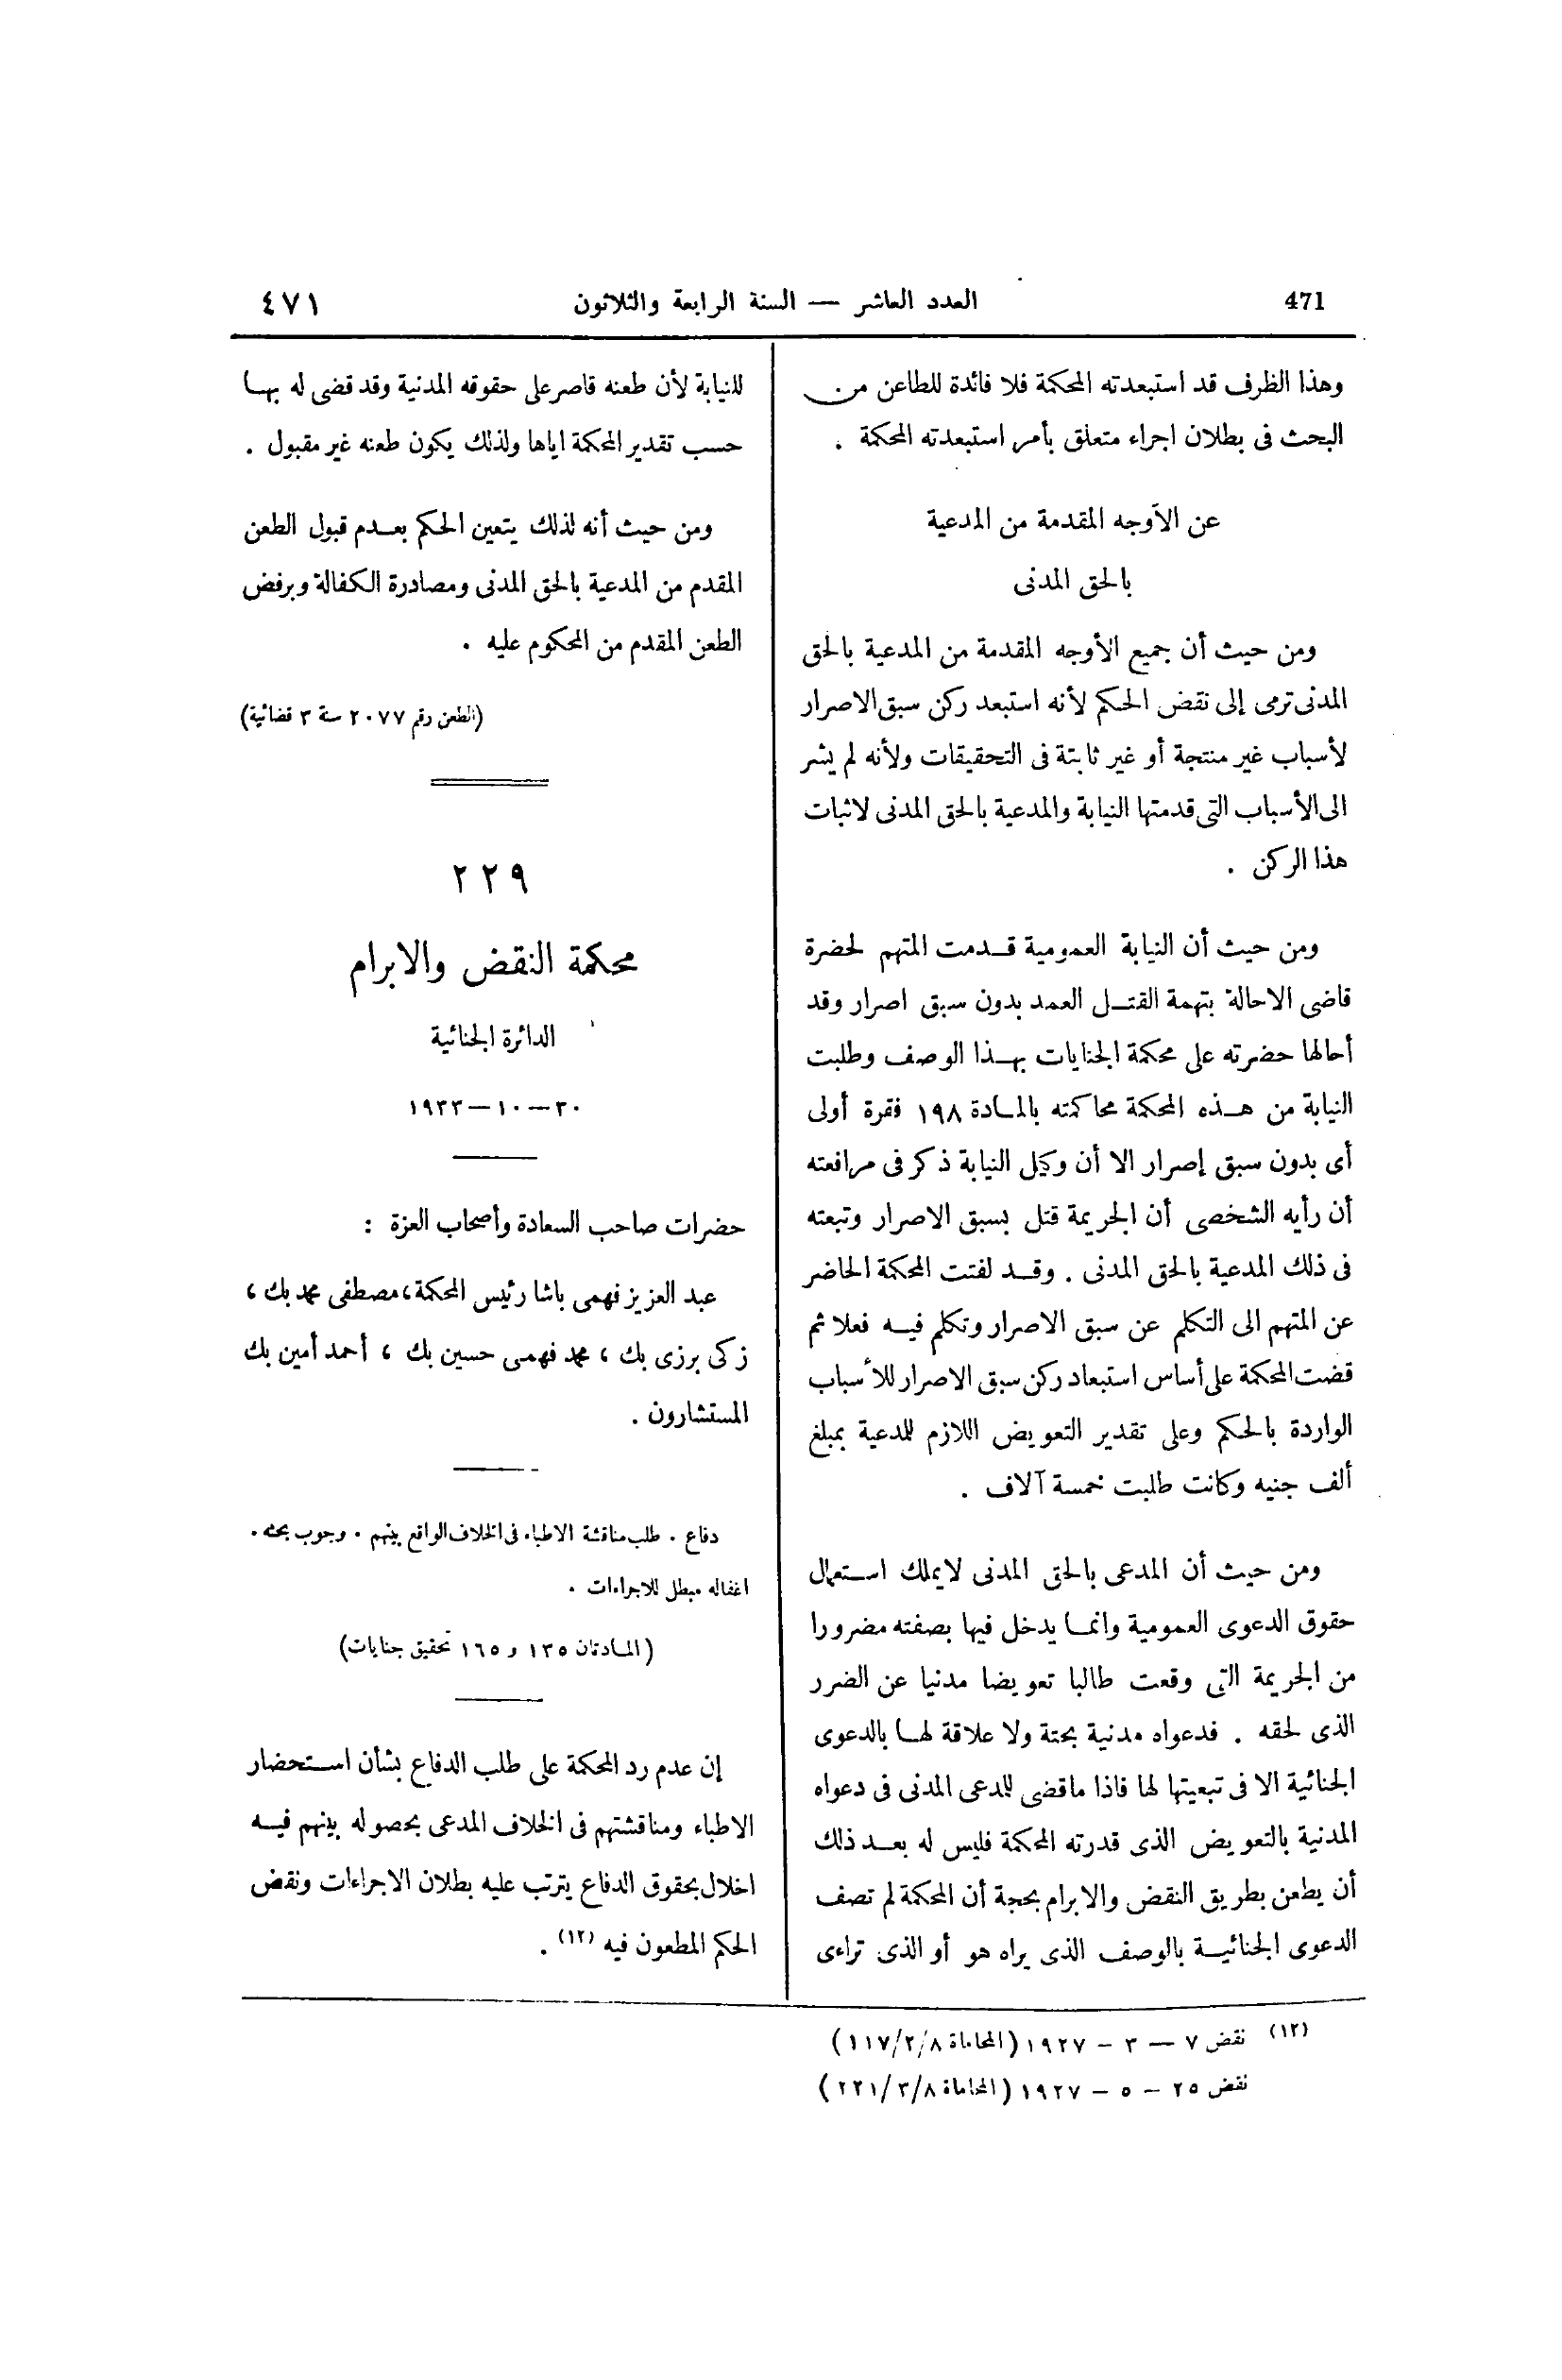 471
العدد العاشر — السنة الرابعة والثلاثون
٤٧١
وهذا الظرف قد استبعدته المحكمة فلا فائدة للطاعن من
البحث فى بطلان اجراء متعلق بأمر استبعدته المحكمة .
عن الأوجه المقدمة من المدعية
بالحق المدنى
ومن حيث أن جميع الأوجه المقدمة من المدعية بالحق
المدنى ترمى إلى نقض الحكم لأنه استبعد ركن سبق الاصرار
لأسباب غير منتجة أو غير ثابتة فى التحقيقات ولأنه لم يشر
الى الأسباب التى قدمتها النيابة والمدعية بالحق المدنى لاثبات
هذا الركن .
ومن حيث أن النيابة العمومية قدمت المتهم لحضرة
قاضى الاحالة بتهمة القتل العمد بدون سبق اصرار وقد
أحالها حضرته على محكمة الجنايات بهذا الوصف وطلبت
النيابة من هذه المحكمة محاكمته بالمادة ١٩٨ فقرة أولى
أى بدون سبق إصرار الا أن وكيل النيابة ذكر فى مرافعته
أن رأيه الشخصى أن الجريمة قتل بسبق الاصرار وتبعته
فى ذلك المدعية بالحق المدنى . وقد لفتت المحكمة الحاضر
عن المتهم الى التكلم عن سبق الاصرار وتكلم فيه فعلا ثم
قضت المحكمة على أساس استبعاد ركن سبق الاصرار للأسباب
الواردة بالحكم وعلى تقدير التعويض اللازم للمدعية بمبلغ
ألف جنيه وكانت طلبت خمسة آلاف .
ومن حيث أن المدعى بالحق المدنى لا يملك استعمال
حقوق الدعوى العمومية وانما يدخل فيها بصفته مضرورا
من الجريمة التى وقعت طالبا تعويضا مدنيا عن الضرر
الذى لحقه . فدعواه مدنية بحتة ولا علاقة لها بالدعوى
الجنائية الا فى تبعيتها لها فاذا ماقضى للمدعى المدنى فى دعواه
المدنية بالتعويض الذى قدرته المحكمة فليس له بعد ذلك
أن يطعن بطريق النقض والابرام بحجة أن المحكمة لم تصف
الدعوى الجنائية بالوصف الذى يراه هو أو الذى تراءى
للنيابة لأن طعنه قاصر على حقوقه المدنية وقد قضى له بها
حسب تقدير المحكمة اياها ولذلك يكون طعنه غير مقبول .
ومن حيث أنه لذلك يتعين الحكم بعدم قبول الطعن
المقدم من المدعية بالحق المدنى ومصادرة الكفالة وبرفض
الطعن المقدم من المحكوم عليه .
(الطعن رقم ٢٠٧٧ سنة ٣ قضائية)
٢٢٩
محكمة النقض والابرام
الدائرة الجنائية
٣٠—١٠—١٩٣٣
حضرات صاحب السعادة وأصحاب العزة :
عبد العزيز فهمى باشا رئيس المحكمة، مصطفى محمد بك ،
زكى برزى بك ، محمد فهمى حسين بك ، أحمد أمين بك
المستشارون .
دفاع . طلب مناقشة الاطباء فى الخلاف الواقع بينهم . وجوب بحثه .
اغفاله مبطل للاجراءات .
(المادتان ١٣٥ و ١٦٥ تحقيق جنايات)
إن عدم رد المحكمة على طلب الدفاع بشأن استحضار
الاطباء ومناقشتهم فى الخلاف المدعى بحصوله بينهم فيه
اخلال بحقوق الدفاع يترتب عليه بطلان الاجراءات ونقض
الحكم المطعون فيه (١٢) .
(١٢) نقض ٧ — ٣ — ١٩٢٧ (المحاماة ١١٧/٢/٨)
نقض ٢٥ — ٥ — ١٩٢٧ (المحاماة ٢٢١/٣/٨)